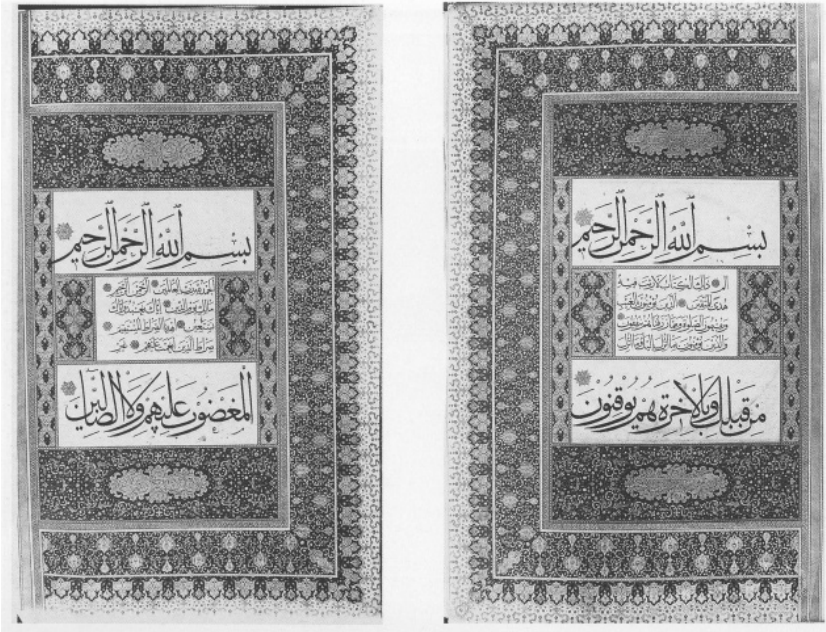 بِسْمِ اللَّهِ الرَّحْمٰنِ الرَّحِيمِ
الحمد لله رب العالمين الرحمن الرحيم
مالك يوم الدين اياك نعبد واياك
نستعين اهدنا الصراط المستقيم
صراط الذين انعمت عليهم غير
الْمَغْضُوبِ عَلَيْهِمْ وَلَا الضَّالِّينَ
بِسْمِ اللَّهِ الرَّحْمٰنِ الرَّحِيمِ
الم ذلك الكتاب لا ريب فيه
هدى للمتقين الذين يؤمنون بالغيب
ويقيمون الصلوة ومما رزقناهم ينفقون
والذين يؤمنون بما انزل اليك وما انزل
مِنْ قَبْلِكَ وَبِالْآخِرَةِ هُمْ يُوقِنُونَ